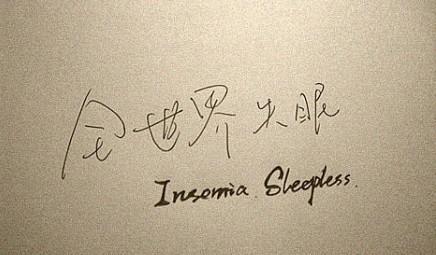 全世界失眠
Insomia Sleepless.